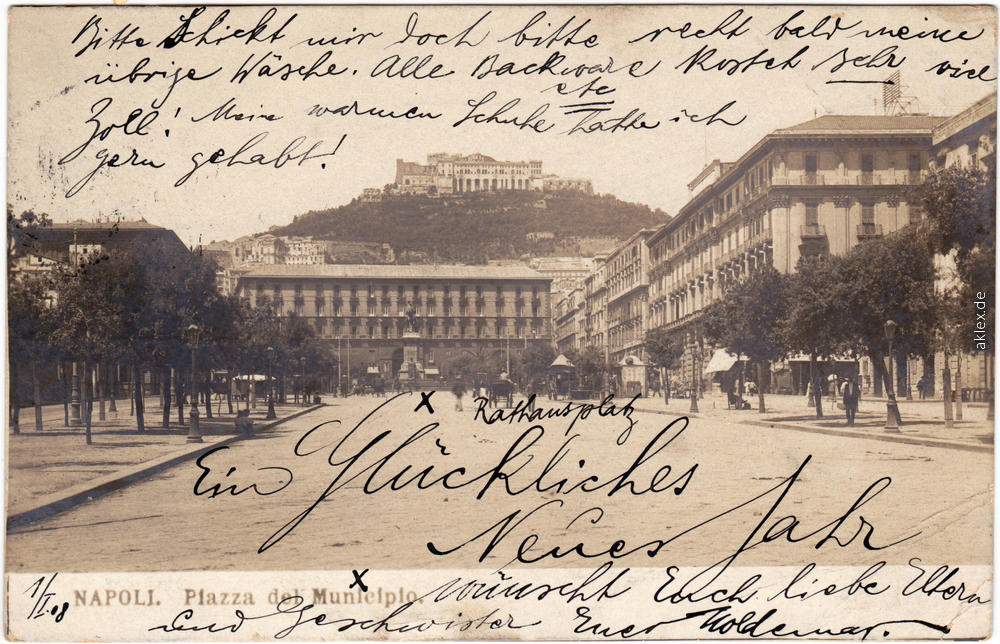 Bitte Schickt mir doch bitte recht bald meine
übrige Wäsche. Alle Backware etc kostet sehr viel
Zoll! Meine warmen Schuhe hätte ich
gern gehabt!
x Rathausplatz
Ein Glückliches
Neues Jahr
wünscht Euch liebe Eltern
und Geschwister Euer Woldemar.
1/I.08 NAPOLI. Piazza del Municipio. x
aklex.de